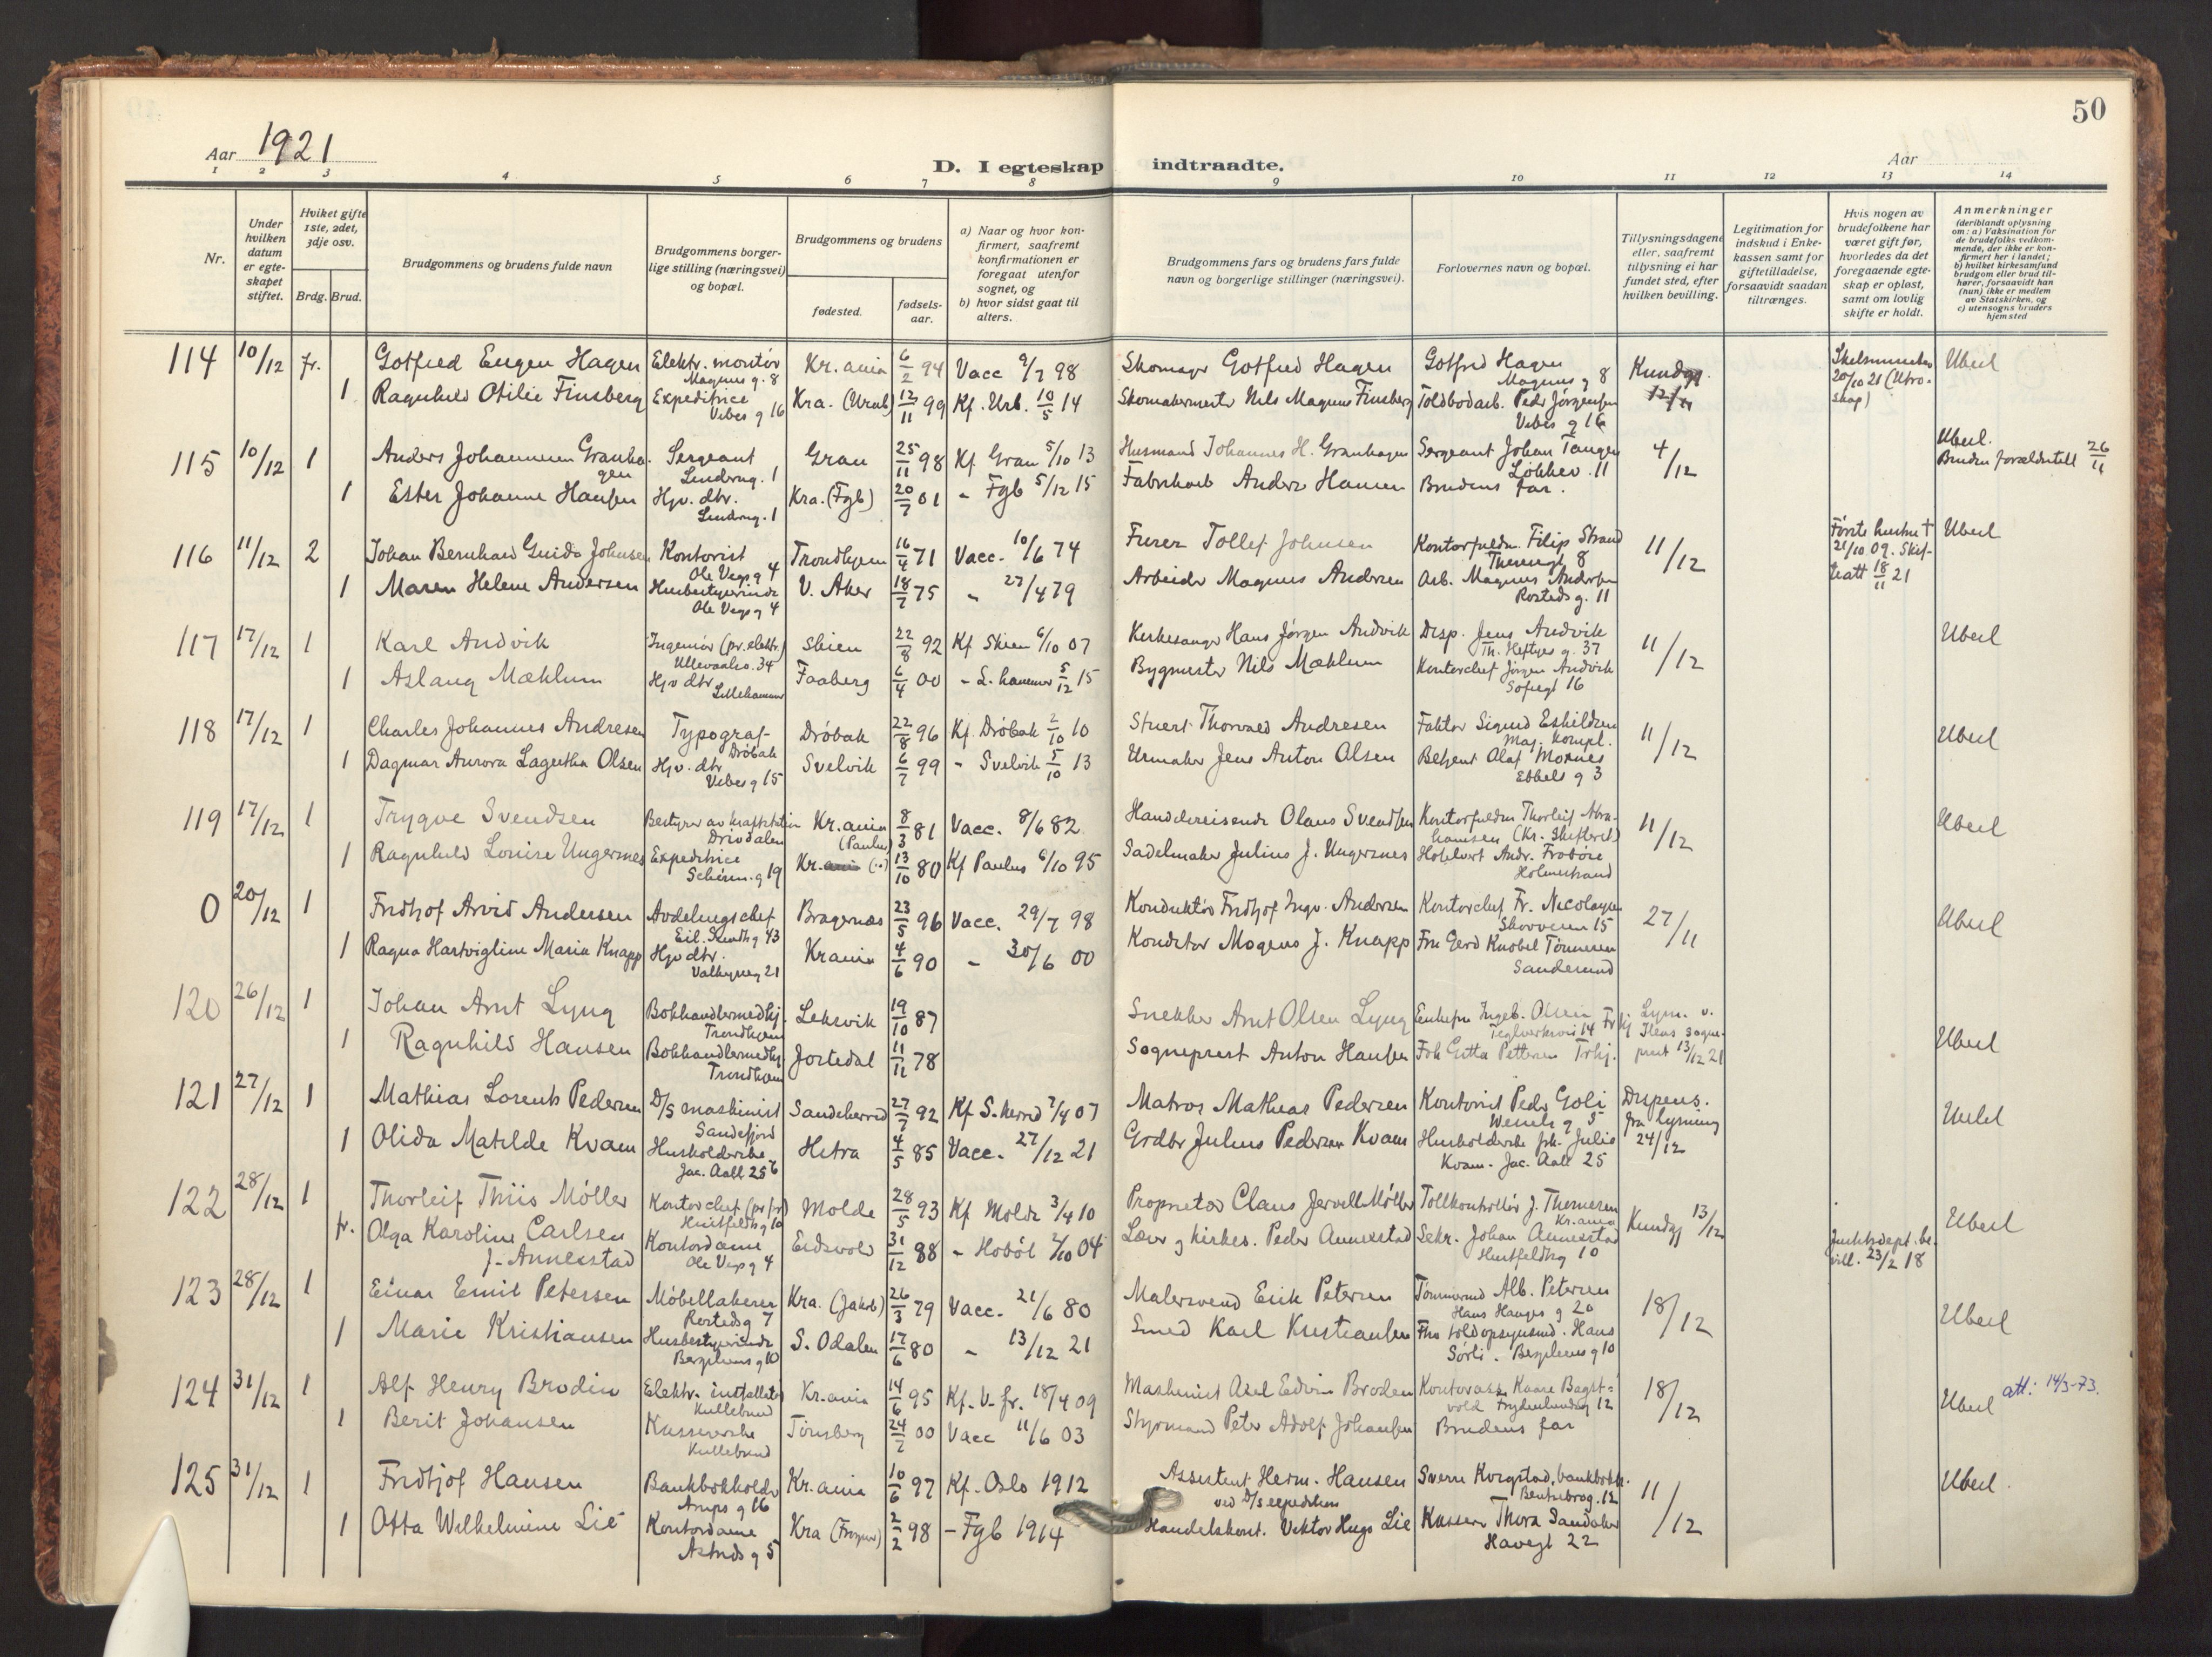 50
Aar 1921
D. I egteskap indtraadte.
Aar
1 2 3 4 5 6 7 8 9 10 11 12 13 14
Nr.
Under hvilken datum er egteskapet stiftet.
Hvilket gifte 1ste, 2det, 3dje osv.
Brdg. Brud.
Brudgommens og brudens fulde navn
Brudgommens borgerlige stilling (næringsvei) og bopæl.
Brudgommens og brudens
fødested.
fødselsaar.
a) Naar og hvor konfirmert, saafremt konfirmationen er foregaat utenfor sognet, og
b) hvor sidst gaat til alters.
Brudgommens fars og brudens fars fulde navn og borgerlige stillinger (næringsvei).
Forlovernes navn og bopæl.
Tillysningsdagene eller, saafremt tillysning ei har fundet sted, efter hvilken bevilling.
Legitimation for indskud i Enkekassen samt for giftetilladelse, forsaavidt saadan tiltrænges.
Hvis nogen av brudefolkene har været gift før, hvorledes da det foregaaende egteskap er opløst, samt om lovlig skifte er holdt.
Anmerkninger
(deriblandt oplysning om: a) Vaksination for de brudefolks vedkommende, der ikke er konfirmert her i landet;
b) hvilket kirkesamfund brudgom eller brud tilhører, forsaavidt han (hun) ikke er medlem av Statskirken, og
c) utensogns bruders hjemsted
114 10/12 fr. Gotfred Eugen Hagen Elektr. montør Magnus g. 8 Kr.ania 6/2 94 Vacc 9/7 98 Skomager Gotfred Hagen Gotfred Hagen Magnus g 8 Kundgj. 20/10 21 Ubesl
1 Ragnhild Otilie Finsberg Expeditrice Vibes g 16 Kra. (Uran) 12/11 99 Kf. Urb. 10/5 14 Skomakermester Nils Magnus Finsberg Toldbodarb. Peder Jørgensen Vibes g 16
115 10/12 1 Anders Johannesen Granhagen Sergeant Lindrug. 1 Gran 25/11 98 Kf Gran 5/10 13 Husmand Johannes H. Granhagen Sergeant Johan Tangen Løkkev. 11 4/12 Ubesl. 26/11
1 Ester Johanne Hansen Hjv. dtr. Lindrug. 1 Kra. (Fgb) 20/7 01 - Fgb 5/12 15 Fabrikarb Anders Hansen Brudens far.
116 11/12 2 Johan Bernhard Guido Johnsen Kontorist Ole Vigs g 4 Trondhjem 16/4 71 Vacc. 10/6 74 Furer Tollef Johnsen Kontorfuldm. Filip Strand Theresegt 8 11/12 Første hustru † 21/10 09. Skifteatt 18/11 21 Ubesl
1 Maren Helene Andersen Husbestyrerinde Ole Vigs g 4 V. Aker 18/7 75 " 27/4 79 Arbeider Magnus Andersen Arb. Magnus Andersen Rosteds g. 11
117 17/12 1 Karl Andvik Ingeniør (pr. elektr.) Ullevaalsv. 34 Skien 22/8 92 Kf Skien 6/10 07 Kirkesanger Hans Jørgen Andvik Disp. Jens Andvik Th. Heftyes g. 37 11/12 Ubesl
1 Aslaug Mæhlum Hjv dtr Lillehammer Faaberg 6/4 00 - L.hammer 5/12 15 Bygmester Nils Mæhlum Kontorchef Jørgen Andvik Sofiegt 16
118 17/12 1 Charles Johannes Andresen Typograf Drøbak Drøbak 22/8 96 Kf. Drøbak 2/10 10 Stuert Thorvald Andresen Faktor Sigurd Eskildsen 11/12 Ubesl
1 Dagmar Aurora Lagertha Olsen Hjv. dtr Vibes g 15 Svelvik 6/7 99 - Svelvik 5/10 13 Urmaker Jens Anton Olsen Betjent Olaf Moknes Ebbels g 3
119 17/12 1 Trygve Svendsen Bestyrer av kraftstation Drivdalen Kr.ania (Paulus) 8/3 81 Vacc. 8/6 82 Handelsreisende Olaus Svendsen Kontorfuldm Thorleif Abrahamsen (Kr. Skifteret) 11/12 Ubesl
1 Ragnhild Louise Ungersnes Expeditrice Schives. g 19 Kr. 13/10 80 Kf Paulus 6/10 95 Sadelmaker Julius J. Ungersnes Hotelvert Andr. Frobøse Holmestrand
0 20/12 1 Fridhof Arvid Andersen Avdelingschef Eil. Sundts g 43 Bragernæs 23/5 96 Vacc. 29/7 98 Konduktør Fridhof Ingv. Andersen Kontorchef Fr. Nicolaysen Skovveien 15 27/11 Ubesl
1 Ragna Hartvigline Maria Knapp Hjv dtr. Valkyrieg 21 Krania 4/6 90 - 30/6 00 Konditor Mogens J. Knapp Fru Gerd Knobel Tønnesen Sandesund
120 26/12 1 Johan Arnt Lyng Bokhandlermedhj. Trondhjem Leksvik 19/10 87 Snekker Arnt Olsen Lyng Enkefru Ingeb. Olsen Teglverksvei 14 Trhj Lysn. v. Ilens sogneprest 13/12 21 Ubesl
1 Ragnhild Hansen Bokhandlermedhj. Trondhjem Jostedal 11/11 78 Sogneprest Anton Hansen Frk Gitta Pettersen Trhj.
121 27/12 1 Mathias Lorents Pedersen D/S maskinist Sandefjord Sandeherred 27/7 92 Kf S.herred 7/4 07 Matros Mathias Pedersen Kontorist Peder Goli Wessels g 5 Dispens. fra lysning 24/12 Ubesl
1 Olida Matilde Kvam Husholderske Jac. Aall 25 b Hitra 4/5 85 Vacc. 27/12 21 Grdbr Julius Pedersen Kvam Husholderske frk. Julie Kvam. Jac. Aall 25
122 28/12 1 Thorleif Thiis Møller Kontorchef (pr fr) Huitfeldts g 10 Molde 28/5 93 Kf Molde 3/4 10 Proprietær Claus Jervell Møller Tollkontrollør J. Thomesen Kr.ania Kundgj 13/12 Ubesl
fr. Olga Karoline Carlsen f. Annerstad Kontordame Ole Vigs g 4 Eidsvold 31/12 88 - Hobøl 2/10 04 Lærer og kirkes. Peder Annerstad Sekr. Johan Annerstad Huitfeldtsg 10 Justitsdept. bevill. 23/2 18
123 28/12 1 Einar Emil Petersen Møbellakerer Rosteds g 7 Kra. (Jakob) 26/3 79 Vacc. 21/6 80 Malersvend Erik Petersen Tømmermd Alb. Petersen Hans Hauges g 20 18/12 Ubesl
1 Marie Kristiansen Husbestyrerinde Bergliens g 10 S. Odalen 17/6 80 " 13/12 21 Smed Karl Kristiansen Fhv toldopsynsmd. Hans Sørli. Bergliens g 10
124 31/12 1 Alf Henry Brodin Elektr. installatør Kullebund Kr.ania 14/6 95 Kf. V. fr. 18/4 09 Maskinist Axel Edvin Brodin Kontorass. Kaare Bagstevold Frydenlundsg 12 18/12 Ubesl att: 14/3-73.
1 Berit Johansen Kassererske Kullebund Tønsberg 24/7 00 Vacc 11/6 03 Styrmand Peter Adolf Johansen Brudens far
125 31/12 1 Fridtjof Hansen Bankbokholder Arups g 16 Kr.ania 10/6 97 Kf. Oslo 1912 Assistent Herm. Hansen ved D/S expedition Sverre Korgstad, bankbokh. Bentsebrog. 12 11/12 Ubesl.
1 Otta Wilhelmine Lie Kontordame Astrids g 5 Kra (Frogner) 2/2 98 - Fgb 1914 Handelskont. Viktor Hugo Lie Kasserer Thora Sandaker Havegt 22